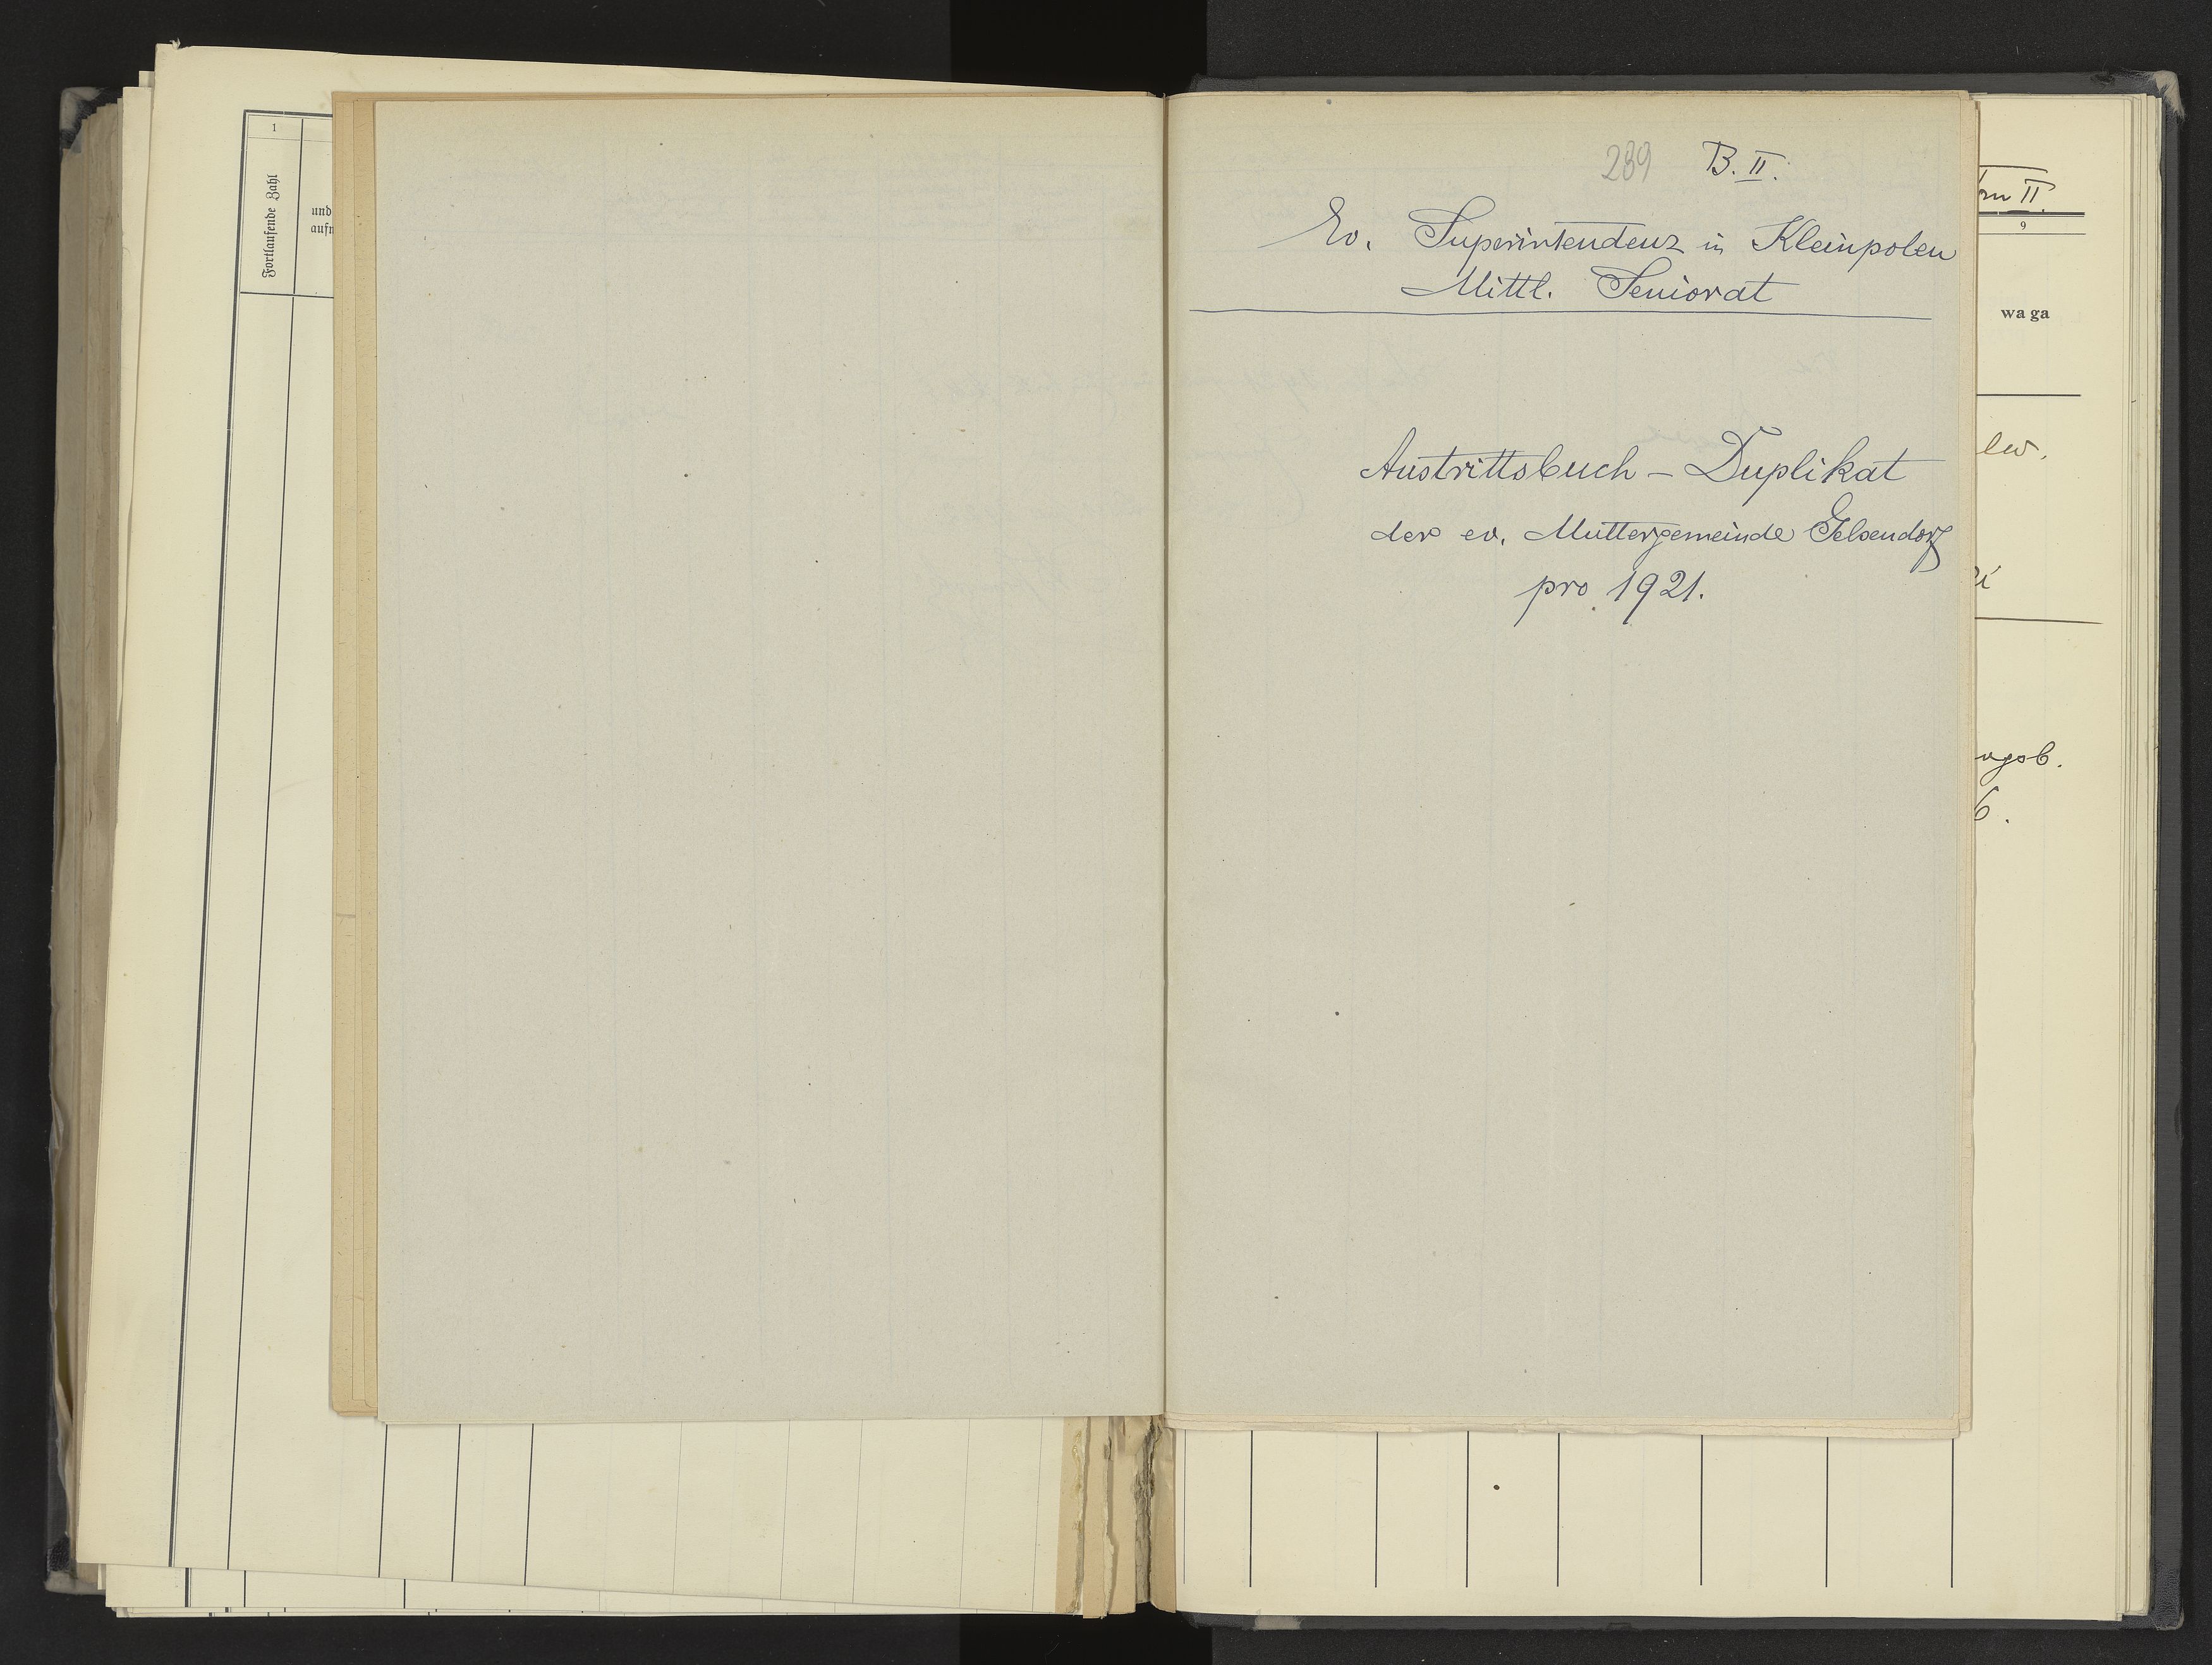 1
Fortlaufende Zahl
und
289 B. II.
Ev. Superintendenz in Kleinpolen
Mittl. Seniorat
Austrittsbuch - Duplikat
der ev. Muttergemeinde Gelsendorf
pro 1921.
II.
9
waga
6.